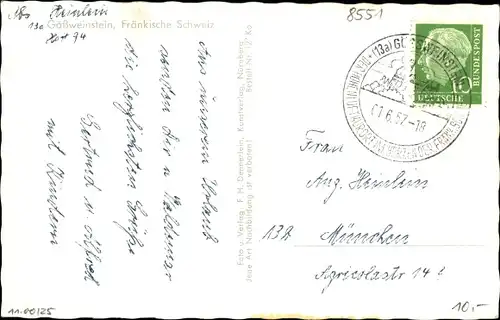 Abs. Heinlein
13a Gößweinstein, Fränkische Schweiz
Hs 94
8551
Aus unserem Urlaub
senden Dir u. Waldemar
die herzlichsten Grüße
Gertrud u.
mit Kindern
Foto u. Verlag F. H. Dennerlein, Kunstverlag, Nürnberg
Jede Art Nachbildung ist verboten! Bestell Nr. 12 Kö
(13a) GÖSSWEINSTEIN
01.6.57-18
DEUTSCHE
BUNDESPOST
10
Frau
Aug. Heinlein
13b München
Agricolastr 14
11.00125
10,-